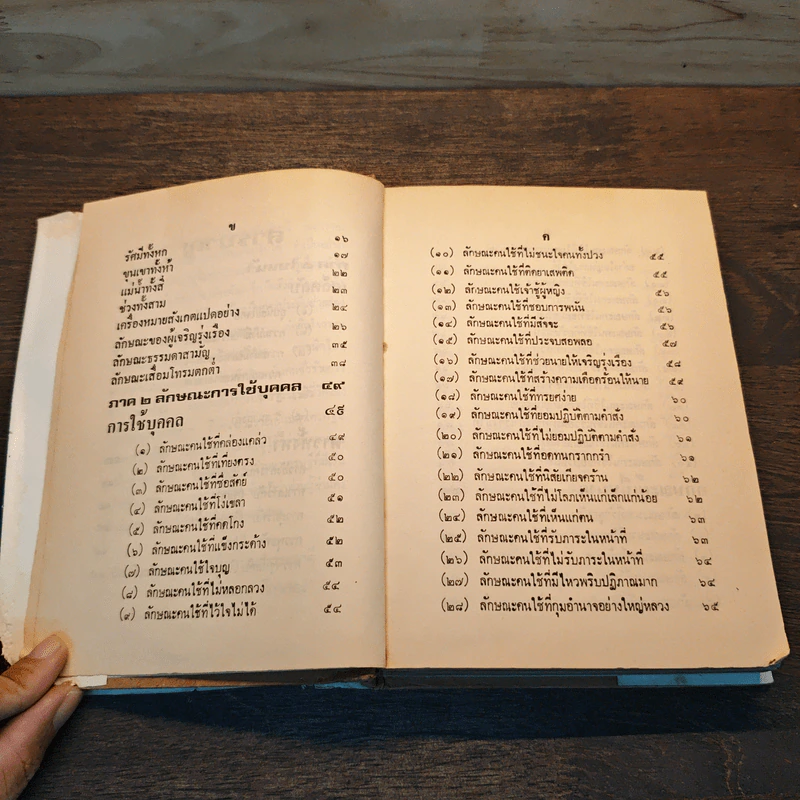 ข
รัศมีทั้งหก ๑๖
ขุนเขาทั้งห้า ๑๗
แม่น้ำทั้งสี่ ๒๒
ช่วงทั้งสาม ๒๓
เครื่องหมายสังเกตแปดอย่าง ๒๔
ลักษณะของผู้เจริญรุ่งเรือง ๒๖
ลักษณะธรรมดาสามัญ ๓๕
ลักษณะเสื่อมโทรมตกต่ำ ๓๘
ภาค ๒ ลักษณะการใช้บุคคล ๔๙
การใช้บุคคล ๔๙
(๑) ลักษณะคนใช้ที่คล่องแคล่ว ๔๙
(๒) ลักษณะคนใช้ที่เที่ยงตรง ๕๐
(๓) ลักษณะคนใช้ที่ซื่อสัตย์ ๕๐
(๔) ลักษณะคนใช้ที่โง่เขลา ๕๑
(๕) ลักษณะคนใช้ที่คดโกง ๕๒
(๖) ลักษณะคนใช้ที่แข็งกระด้าง ๕๒
(๗) ลักษณะคนใช้ใจบุญ ๕๓
(๘) ลักษณะคนใช้ที่ไม่หลอกลวง ๕๔
(๙) ลักษณะคนใช้ที่ไว้ใจไม่ได้ ๕๔
ค
(๑๐) ลักษณะคนใช้ที่ไม่ชนะใจคนทั้งปวง ๕๕
(๑๑) ลักษณะคนใช้ที่ติดยาเสพติด ๕๕
(๑๒) ลักษณะคนใช้เจ้าชู้ผู้หญิง ๕๖
(๑๓) ลักษณะคนใช้ที่ชอบการพนัน ๕๖
(๑๔) ลักษณะคนใช้ที่มีสัจจะ ๕๖
(๑๕) ลักษณะคนใช้ที่ประจบสอพลอ ๕๗
(๑๖) ลักษณะคนใช้ที่ช่วยนายให้เจริญรุ่งเรือง ๕๘
(๑๗) ลักษณะคนใช้ที่สร้างความเดือดร้อนให้นาย ๕๙
(๑๘) ลักษณะคนใช้ที่ทรยศง่าย ๖๐
(๑๙) ลักษณะคนใช้ที่ยอมปฏิบัติตามคำสั่ง ๖๐
(๒๐) ลักษณะคนใช้ที่ไม่ยอมปฏิบัติตามคำสั่ง ๖๑
(๒๑) ลักษณะคนใช้ที่อดทนกรากกรำ ๖๑
(๒๒) ลักษณะคนใช้ที่นิสัยเกียจคร้าน ๖๒
(๒๓) ลักษณะคนใช้ที่ไม่โลภเห็นแก่เล็กแก่น้อย ๖๒
(๒๔) ลักษณะคนใช้ที่เห็นแก่ตน ๖๓
(๒๕) ลักษณะคนใช้ที่รับภาระในหน้าที่ ๖๓
(๒๖) ลักษณะคนใช้ที่ไม่รับภาระในหน้าที่ ๖๔
(๒๗) ลักษณะคนใช้ที่มีไหวพริบปฏิภาณมาก ๖๔
(๒๘) ลักษณะคนใช้ที่กุมอำนาจอย่างใหญ่หลวง ๖๕